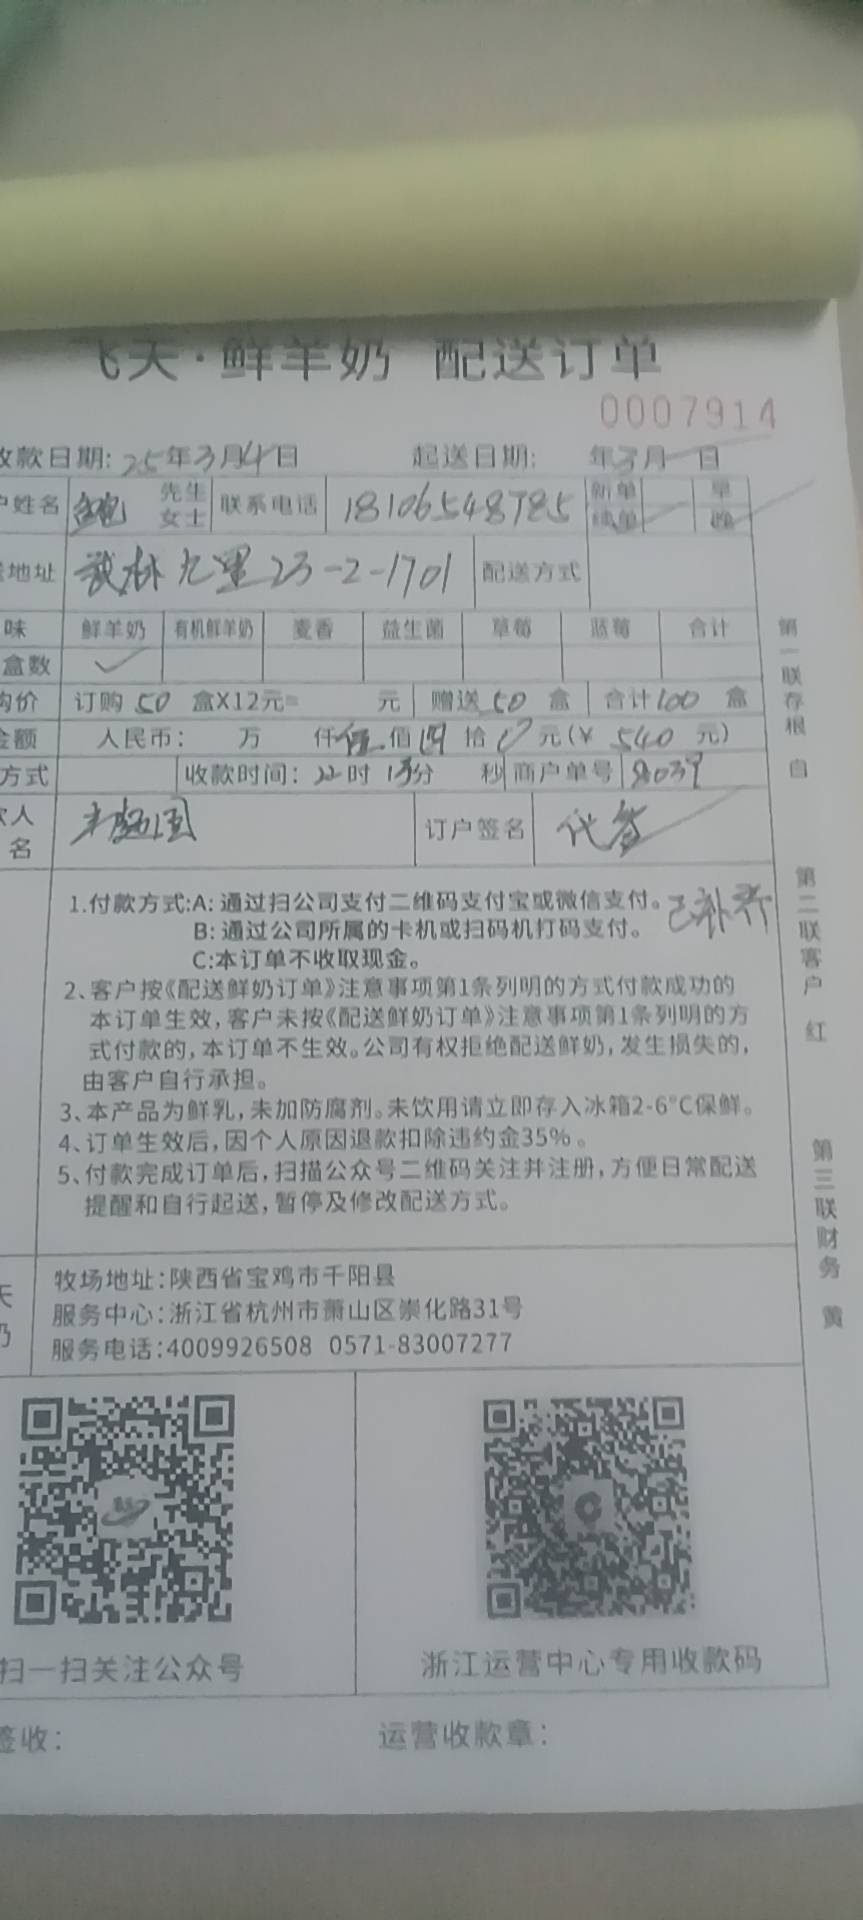 飞天·鲜羊奶 配送订单
0007914
收款日期: 25年3月4日 起送日期: 年3月一日
户姓名 鲍 先生 女士 联系电话 18106548785 新单 续单 早 晚
地址 武林九里23-2-1701 配送方式
味 鲜羊奶 有机鲜羊奶 麦香 益生菌 草莓 蓝莓 合计
盒数 ✓
购价 订购 50 盒X12元= 元 赠送 50 盒 合计100 盒
金额 人民币: 万 仟伍佰四拾0元(¥ 540 元)
方式 收款时间: 22时 分 秒 商户单号
款人
名 订户签名 代签
1.付款方式:A: 通过扫公司支付二维码支付宝或微信支付。
B: 通过公司所属的卡机或扫码机打码支付。 已补齐
C:本订单不收取现金。
2、客户按《配送鲜奶订单》注意事项第1条列明的方式付款成功的
本订单生效,客户未按《配送鲜奶订单》注意事项第1条列明的方
式付款的,本订单不生效。公司有权拒绝配送鲜奶,发生损失的,
由客户自行承担。
3、本产品为鲜乳,未加防腐剂。未饮用请立即存入冰箱2-6°C保鲜。
4、订单生效后,因个人原因退款扣除违约金35%。
5、付款完成订单后,扫描公众号二维码关注并注册,方便日常配送
提醒和自行起送,暂停及修改配送方式。
天
奶
牧场地址:陕西省宝鸡市千阳县
服务中心:浙江省杭州市萧山区崇化路31号
服务电话:4009926508 0571-83007277
扫一扫关注公众号
浙江运营中心专用收款码
签收: 运营收款章:
第一联存根 白
第二联客户 红
第三联财务 黄